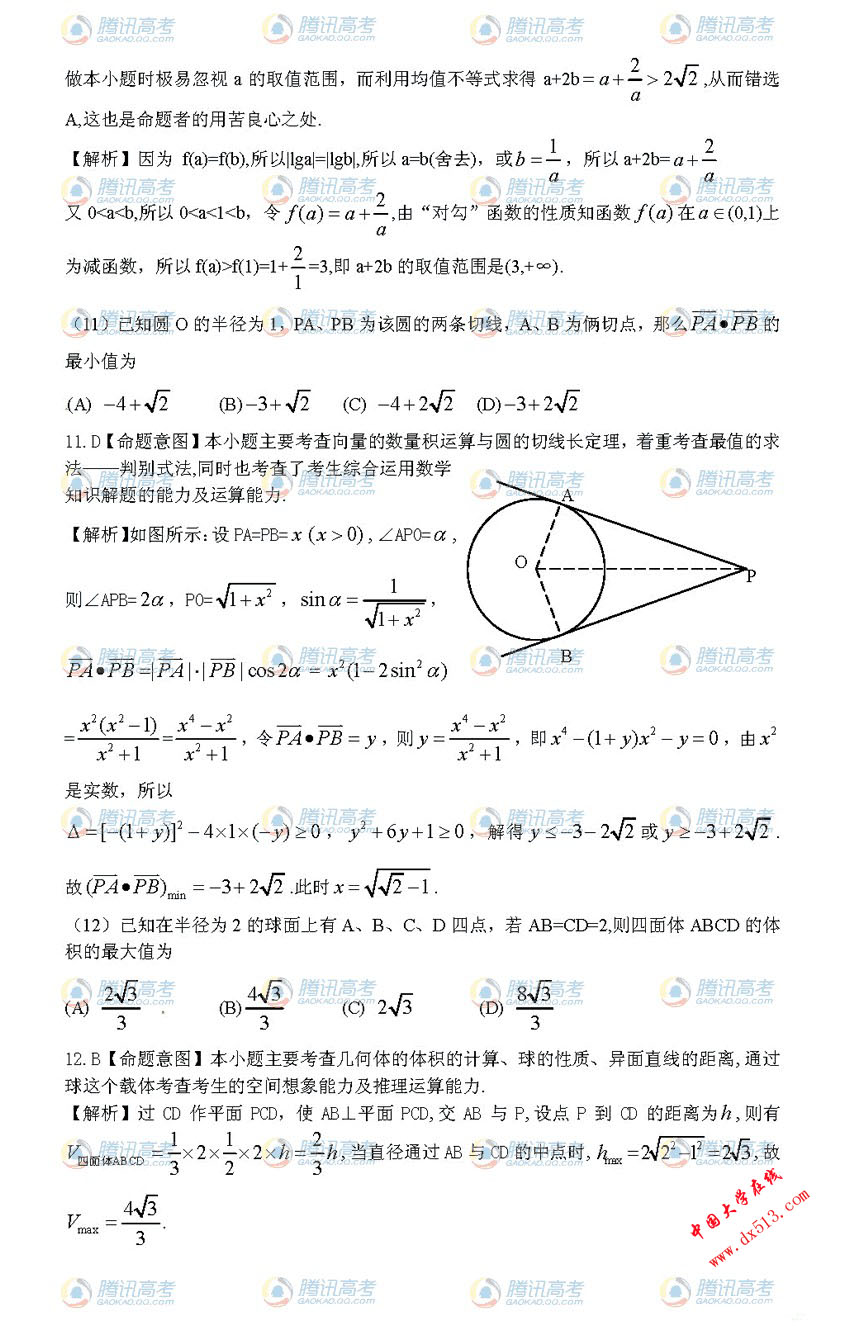 做本小题时极易忽视 a 的取值范围，而利用均值不等式求得 a+2b = a + 2/a > 2√2 ,从而错选
A,这也是命题者的用苦良心之处.
【解析】因为 f(a)=f(b),所以|lga|=|lgb|,所以 a=b(舍去)，或 b = 1/a，所以 a+2b= a + 2/a
又 0<a<b,所以 0<a<1<b，令 f(a) = a + 2/a ,由“对勾”函数的性质知函数 f(a) 在 a∈(0,1)上
为减函数，所以 f(a)>f(1)=1+ 2/1 =3,即 a+2b 的取值范围是(3,+∞).
（11）已知圆 O 的半径为 1，PA、PB 为该圆的两条切线，A、B 为俩切点，那么 PA•PB 的
最小值为
(A) −4+√2 (B) −3+√2 (C) −4+2√2 (D) −3+2√2
11. D【命题意图】本小题主要考查向量的数量积运算与圆的切线长定理，着重考查最值的求
法——判别式法,同时也考查了考生综合运用数学
知识解题的能力及运算能力.
【解析】如图所示：设 PA=PB= x (x > 0)，∠APO= α，
则∠APB= 2α，PO= √(1+x²)，sin α = 1/√(1+x²)，
PA•PB =|PA|·|PB| cos 2α = x²(1−2sin² α)
A
O
P
B
= x²(x²−1)/(x²+1) = (x⁴−x²)/(x²+1)，令 PA•PB = y，则 y = (x⁴−x²)/(x²+1)，即 x⁴ −(1+y)x² − y = 0，由 x²
是实数，所以
Δ =[−(1+y)]² −4×1×(−y) ≥ 0，y² +6y+1≥ 0，解得 y ≤ −3−2√2 或 y ≥ −3+2√2 .
故 (PA•PB)min = −3+2√2 .此时 x = √(√2−1) .
（12）已知在半径为 2 的球面上有 A、B、C、D 四点，若 AB=CD=2,则四面体 ABCD 的体
积的最大值为
(A) 2√3/3 (B) 4√3/3 (C) 2√3 (D) 8√3/3
12. B【命题意图】本小题主要考查几何体的体积的计算、球的性质、异面直线的距离, 通过
球这个载体考查考生的空间想象能力及推理运算能力.
【解析】过 CD 作平面 PCD，使 AB⊥平面 PCD, 交 AB 与 P, 设点 P 到 CD 的距离为 h , 则有
V四面体ABCD = 1/3 ×2× 1/2 ×2×h = 2/3 h , 当直径通过 AB 与 CD 的中点时, hmax = 2√(2²−1²) = 2√3 , 故
Vmax = 4√3/3 .
中国大学在线
www.dx513.com
腾讯高考
GAOKAO.QQ.COM